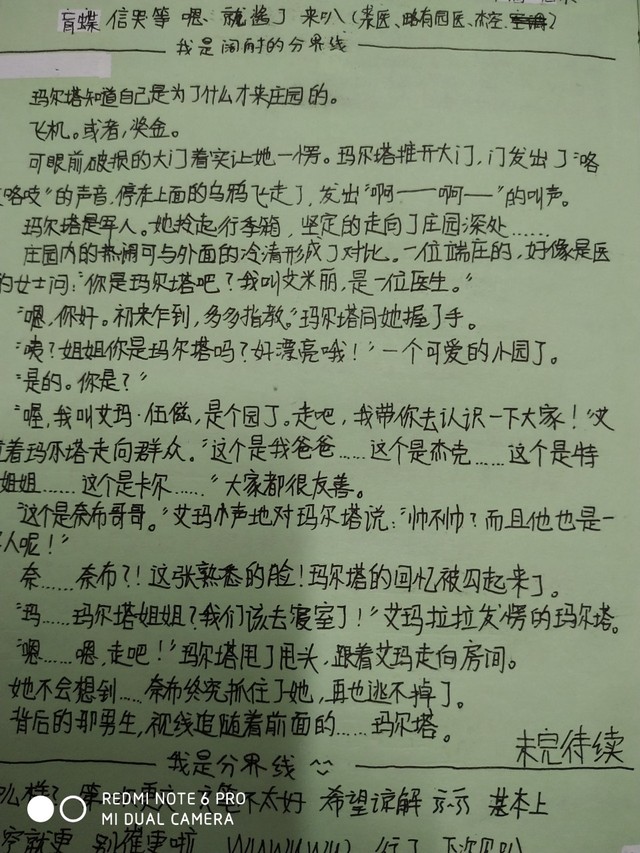 盲蝶 信哭等 嗯 就酱了 来叭（类医、略有园医、杰空、
我是阔耐的分界线
玛尔塔知道自己是为了什么才来庄园的。
飞机。或者,奖金。
可眼前破损的大门着实让她一愣。玛尔塔推开大门,门发出了“咯
咯吱”的声音,停在上面的乌鸦飞走了,发出“啊——啊—”的叫声。
玛尔塔是军人。她拎起行李箱,坚定的走向了庄园深处……
庄园内的热闹可与外面的冷清形成了对比。一位端庄的,好像是医
的女士问:“你是玛尔塔吧？我叫艾米丽,是一位医生。”
“嗯,你好。初来乍到,多多指教。”玛尔塔同她握了手。
“咦?姐姐你是玛尔塔吗?好漂亮哦！”一个可爱的小园丁。
“是的。你是?”
“喔,我叫艾玛·伍兹,是个园丁。走吧,我带你去认识一下大家！”艾
着玛尔塔走向群众。“这个是我爸爸……这个是杰克……这个是特
姐姐……这个是卡尔……”大家都很友善。
“这个是奈布哥哥。”艾玛小声地对玛尔塔说:“帅不帅?而且他也是一
人呢！”
奈……奈布?!这张熟悉的脸！玛尔塔的回忆被勾起来了。
“玛……玛尔塔姐姐?我们该去寝室了！”艾玛拉拉发愣的玛尔塔。
“嗯……嗯,走吧！”玛尔塔甩了甩头,跟着艾玛走向房间。
她不会想到……奈布终究抓住了她,再也逃不掉了。
背后的那男生,视线追随着前面的……玛尔塔。
未完待续
我是分界线
不太好 希望谅解 基本上
就更 别催更啦 wuwuwu 行了 下次见叭
REDMI NOTE 6 PRO
MI DUAL CAMERA